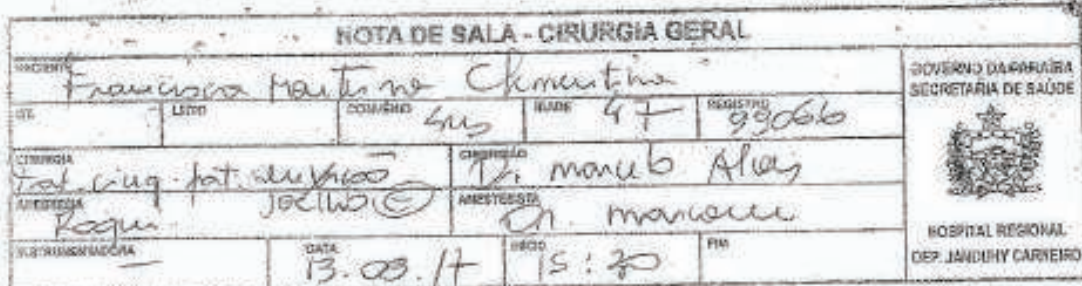 NOTA DE SALA - CIRURGIA GERAL
PACIENTE
Francisca Clementino
QT. LEITO CONVÊNIO SUS IDADE 47 REGISTRO 99066
CIRURGIA
Trat. cirug. fat. CIRURGIÃO Dr. Marcelo Alves
ANESTESIA
Raqui JOELHO (E) ANESTESISTA Dr.
INSTRUMENTADORA — DATA 13.03.17 INÍCIO 15:20 FIM
GOVERNO DA PARAÍBA
SECRETARIA DE SAÚDE
HOSPITAL REGIONAL
DEP. JANDUHY CARNEIRO